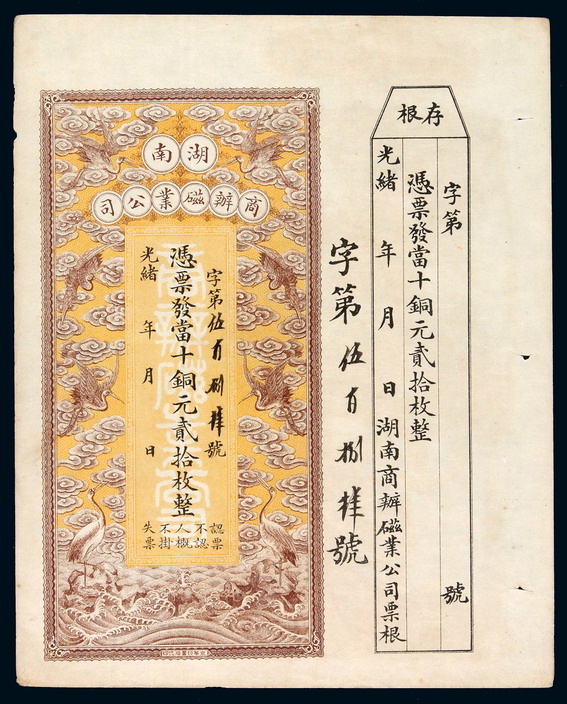 存根
字第 號
憑票發當十銅元貳拾枚整
光緒 年 月 日 湖南商辦磁業公司票根
字第伍百捌 號
湖南
商辦磁業公司
字第伍百捌 號
憑票發當十銅元貳拾枚整
光緒 年 月 日
認票
不認
人概
不掛
失票